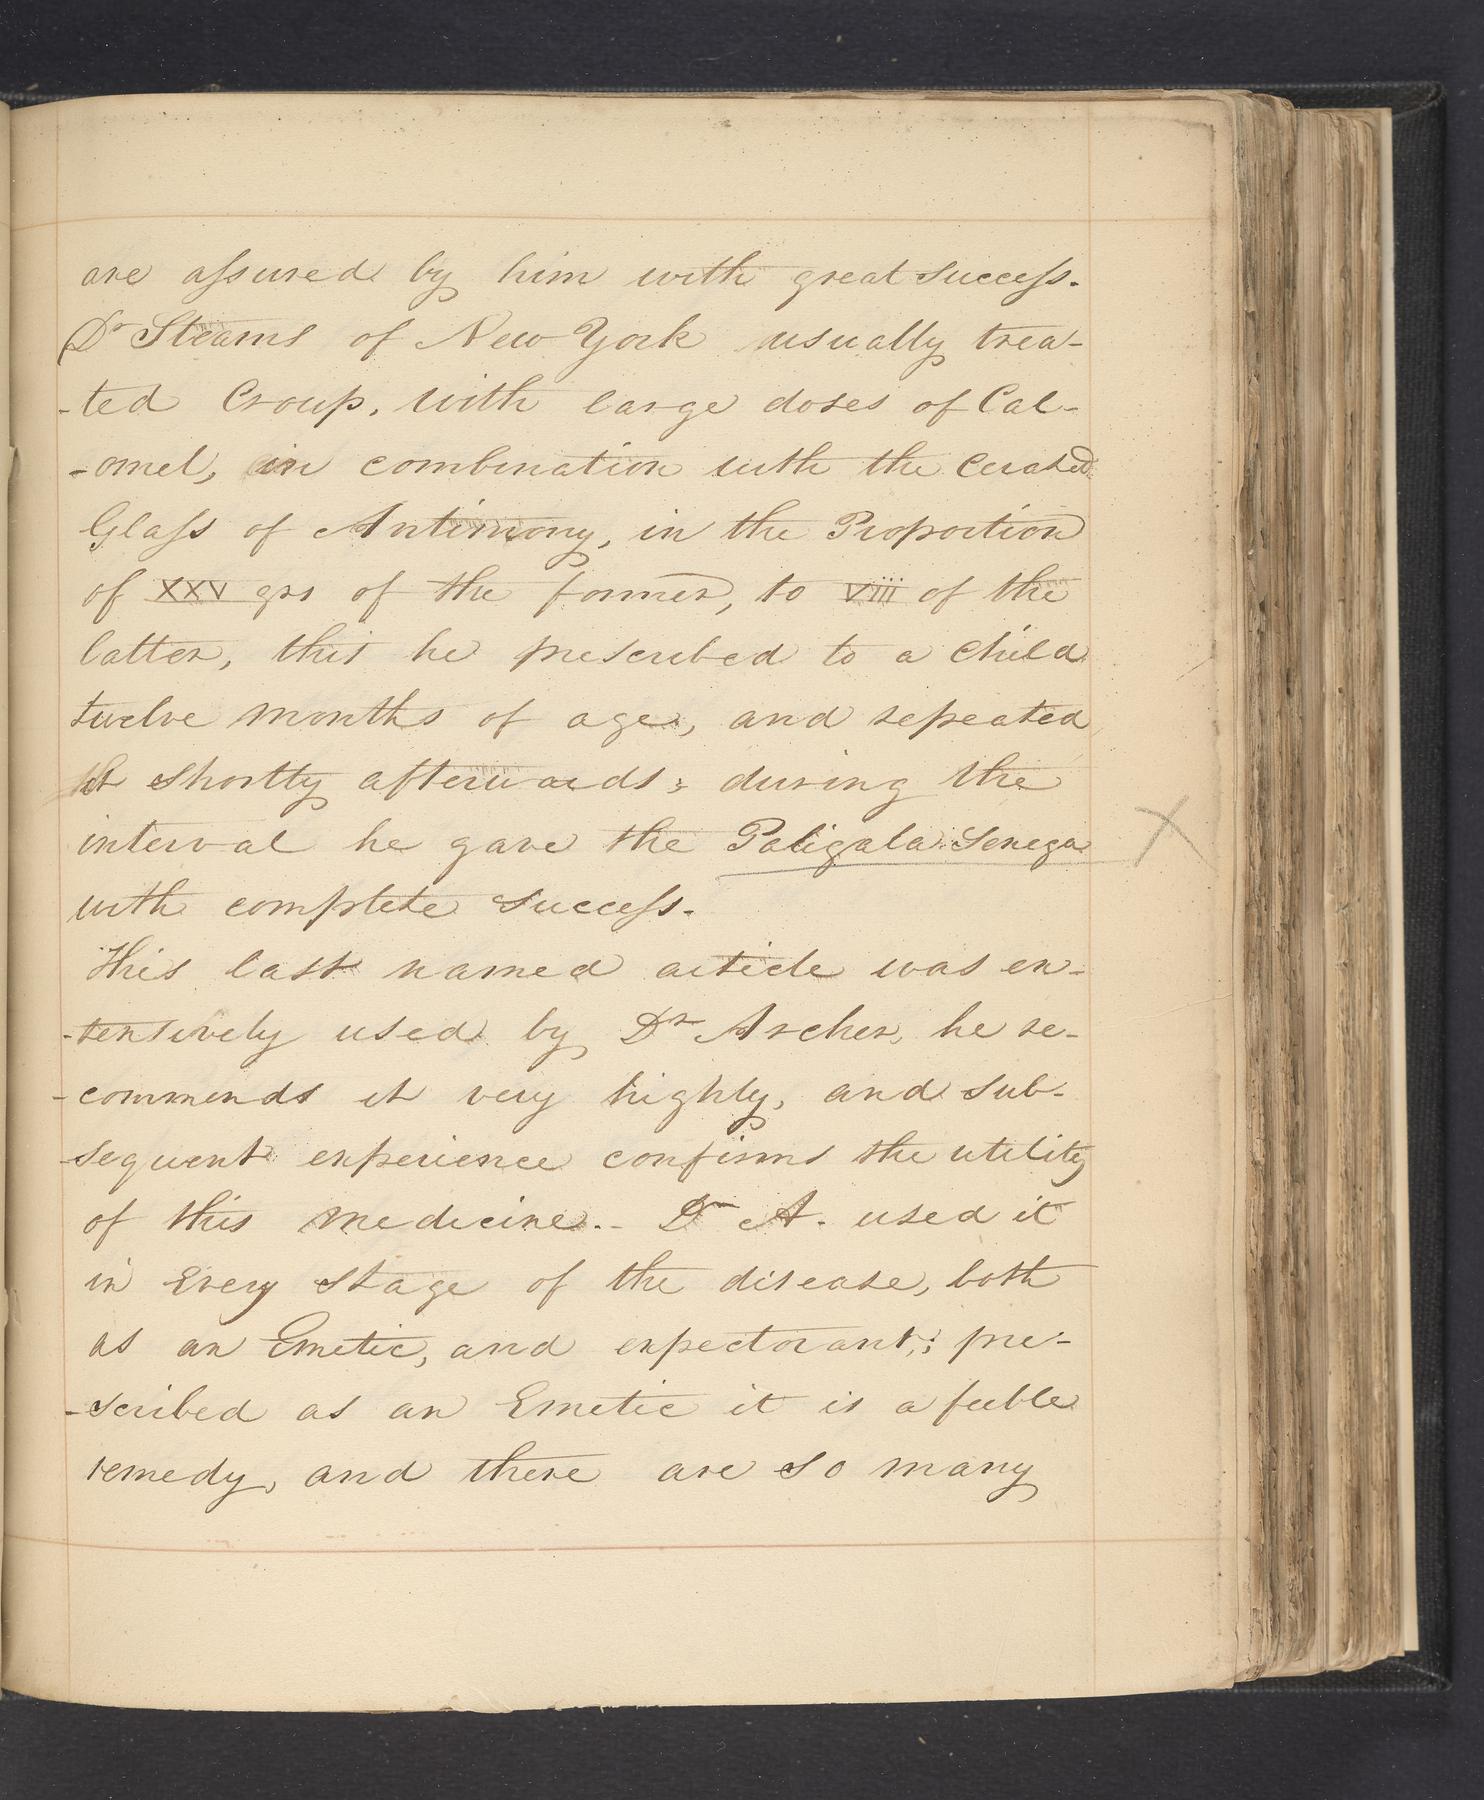 are assured by him with great success.
Dr Stearns of New York usually trea-
-ted Croup, with large doses of Cal-
-omel, in combination with the Cerated
Glass of Antimony, in the Proportion
of XXV grs of the former, to viii of the
latter, this he prescribed to a child
twelve months of age, and repeated
it shortly afterwards; during the
interval he gave the Paligala Senega
with complete success.
This last named article was ex-
-tensively used by Dr Archer, he re-
-commends it very highly, and sub-
-sequent experience confirms the utility
of this medicine.- Dr A. used it
in Every stage of the disease, both
as an Emetic, and expectorant; pre-
-scribed as an Emetic it is a feeble
remedy, and there are so many